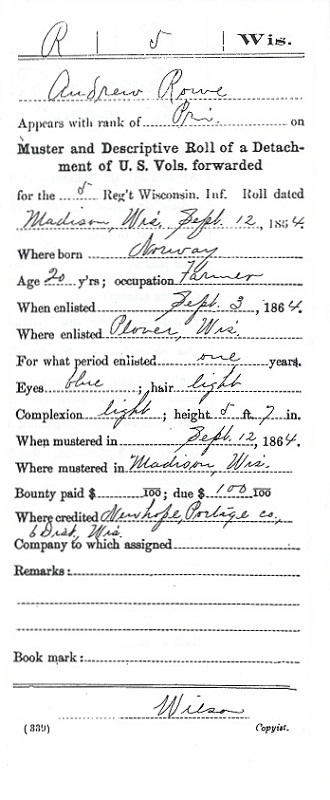 R | 5 | Wis.
Andrew Rowe
Appears with rank of Pri. on
Muster and Descriptive Roll of a Detach-
ment of U. S. Vols. forwarded
for the 5 Reg't Wisconsin. Inf. Roll dated
Madison, Wis, Sept. 12, 1864.
Where born Norway
Age 20 y'rs; occupation Farmer
When enlisted Sept. 3, 1864.
Where enlisted Plover, Wis.
For what period enlisted one years.
Eyes blue; hair light
Complexion light; height 5 ft. 7 in.
When mustered in Sept. 12, 1864.
Where mustered in Madison, Wis.
Bounty paid $ 100; due $ 100 100
Where credited Newhope, Portage co.,
6 Dist, Wis.
Company to which assigned
Remarks:
Book mark:
Wilson
(339) Copyist.